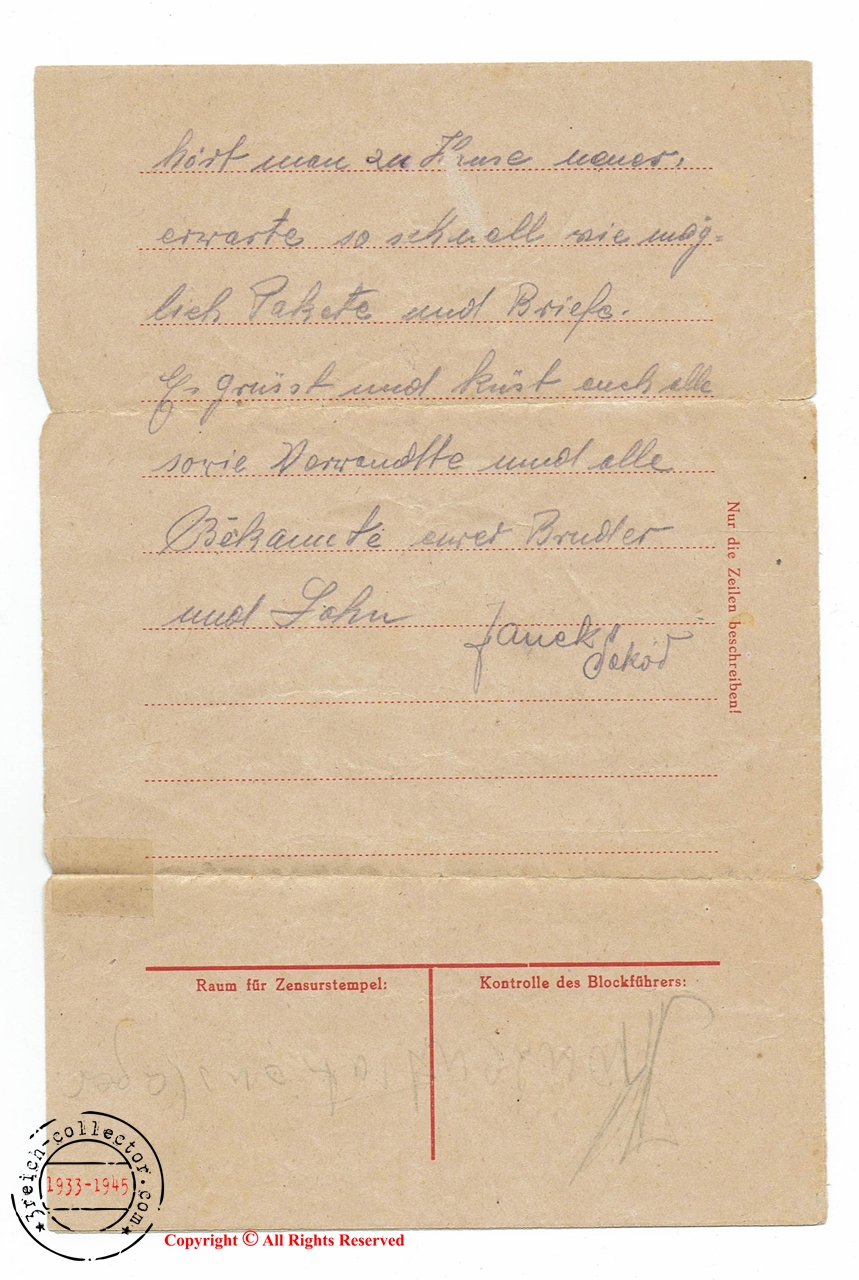 hört man zu Hause neues,
erwarte so schnell wie mög=
lich Pakete und Briefe.
Es grüsst und küst euch alle
sowie Verwandte und alle
Bekannte eurer Bruder
und Sohn
Janek
Nur die Zeilen beschreiben!
Raum für Zensurstempel:
Kontrolle des Blockführers:
3reich-collector.com
1933-1945
Copyright © All Rights Reserved